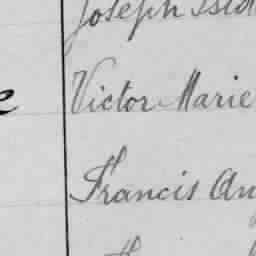 Joseph Isid
Victor Marie
Francis An